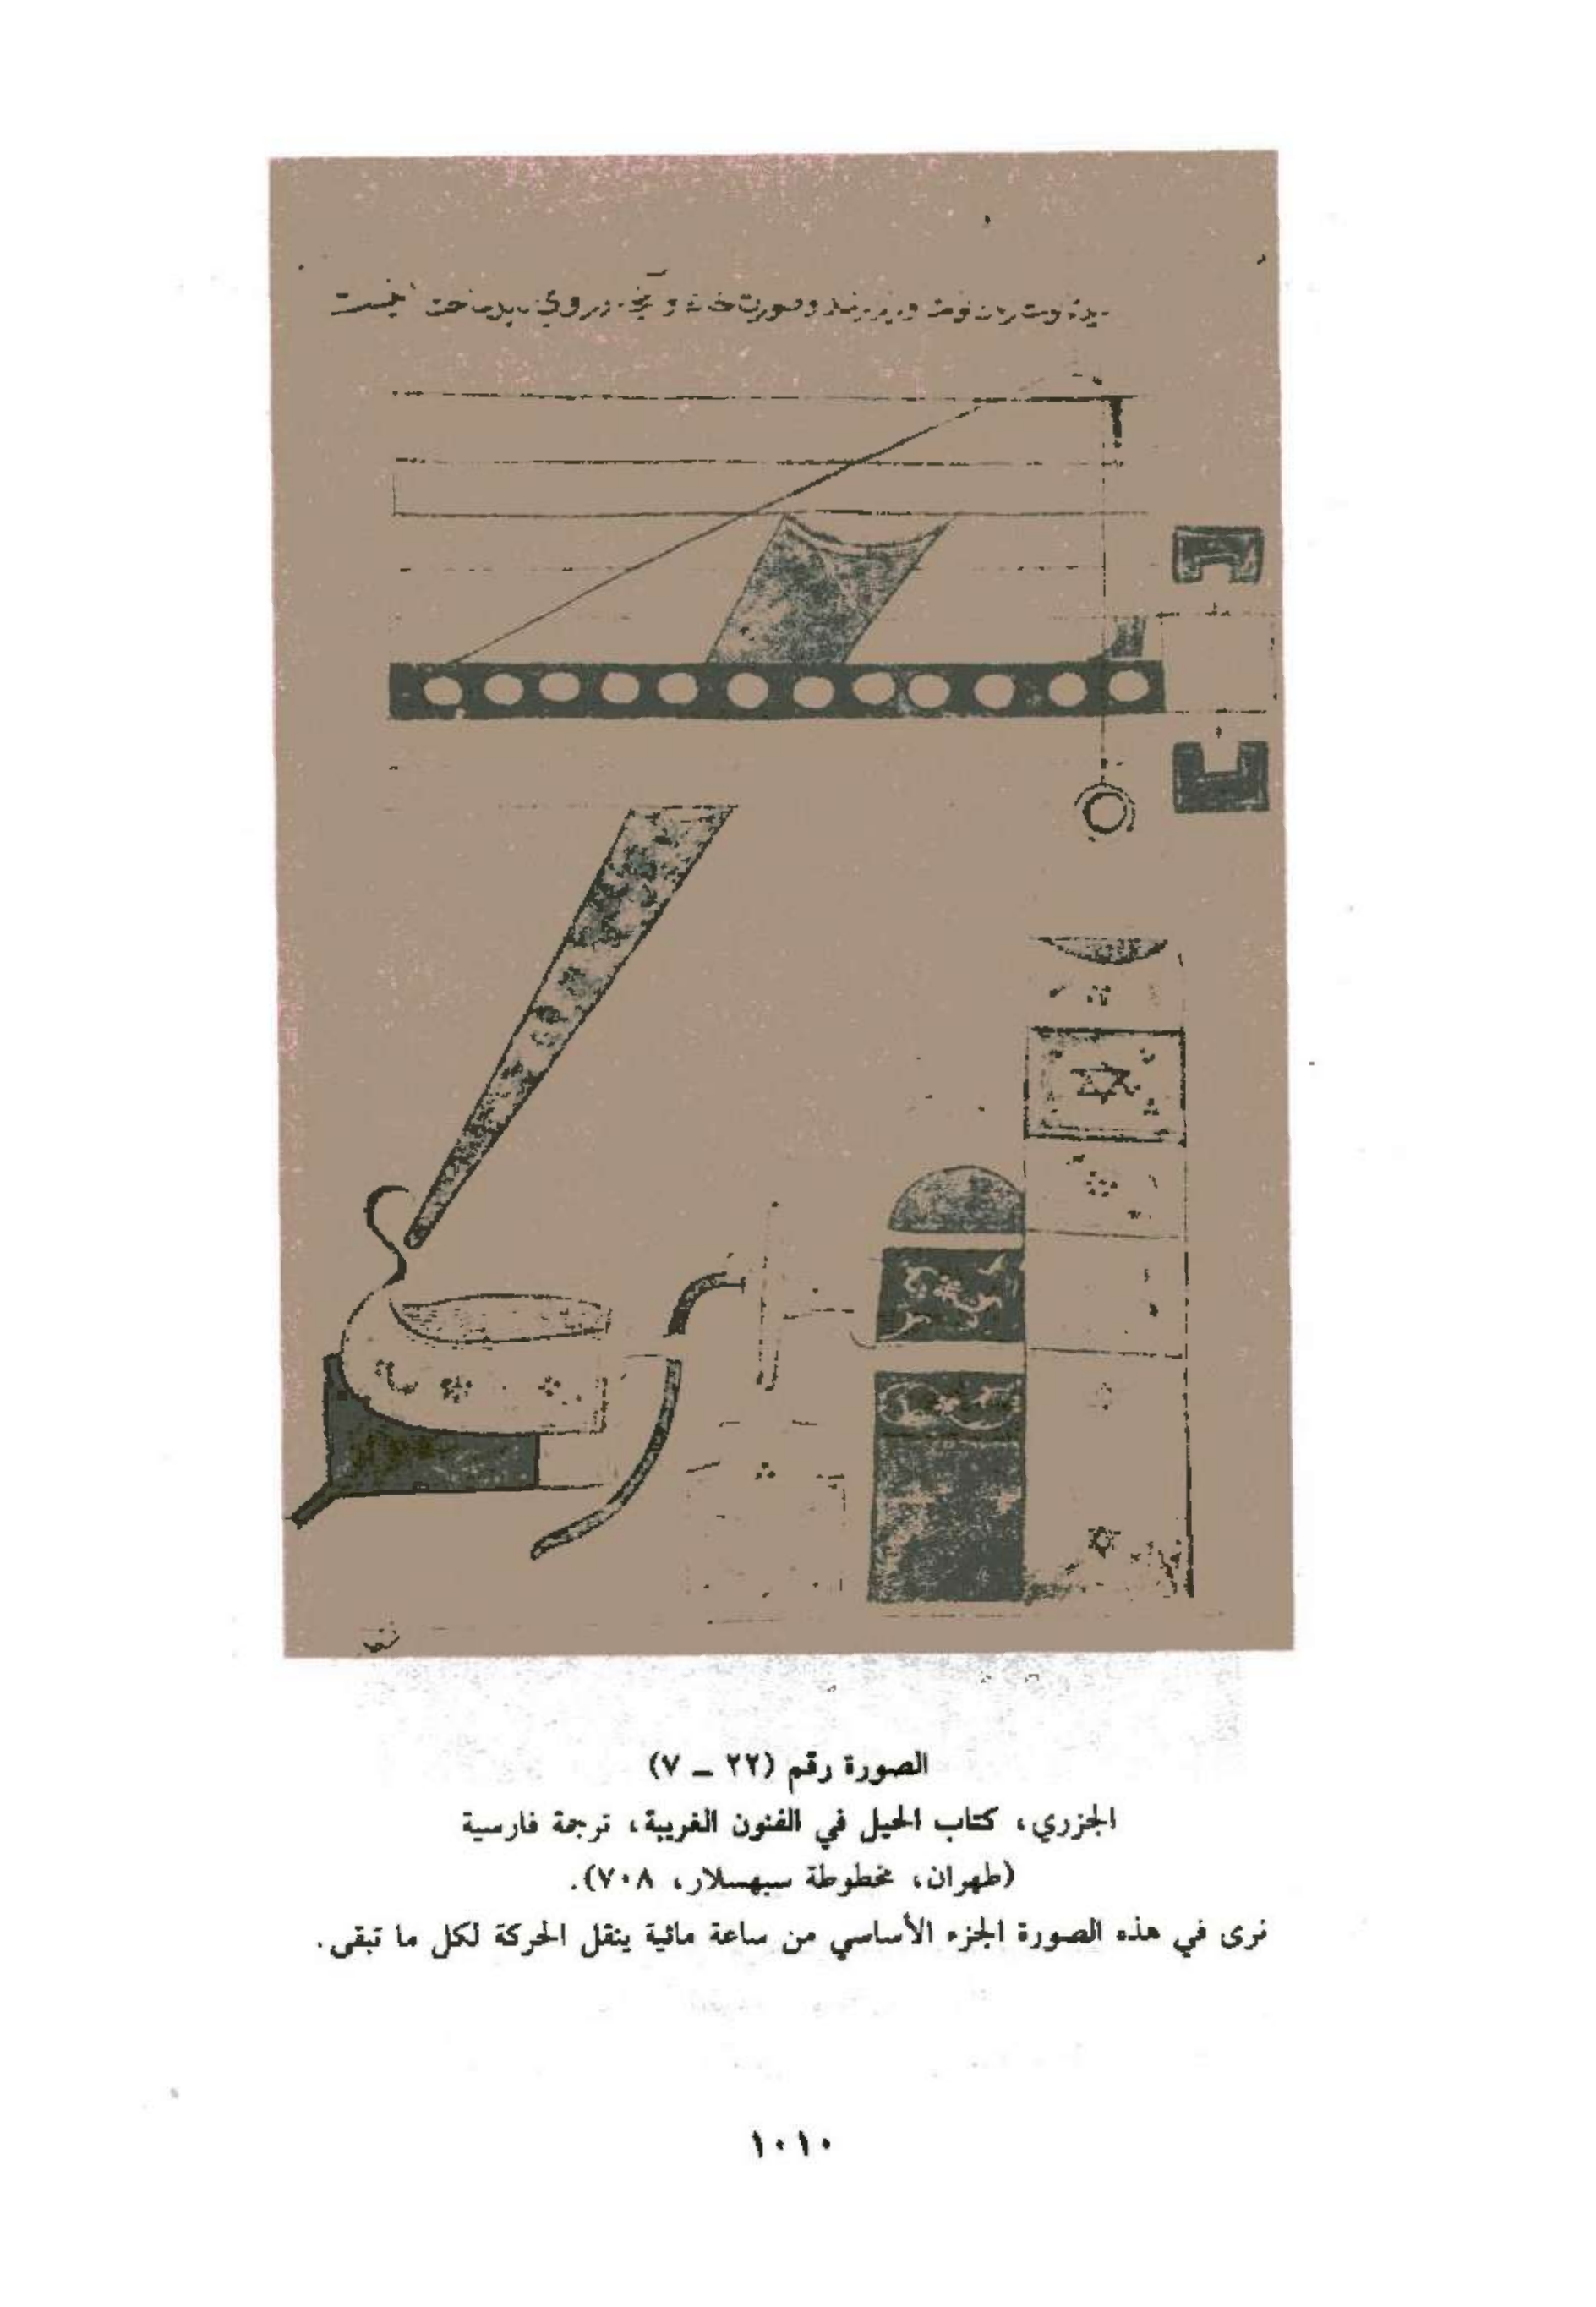 و صورت خانه و آنچه در وی بباید ساخت اینست
الصورة رقم (٢٢ - ٧)
الجزري، كتاب الحيل في الفنون الغريبة، ترجمة فارسية
(طهران، مخطوطة سبهسلار، ٧٠٨).
نرى في هذه الصورة الجزء الأساسي من ساعة مائية ينقل الحركة لكل ما تبقى.
١٠١٠